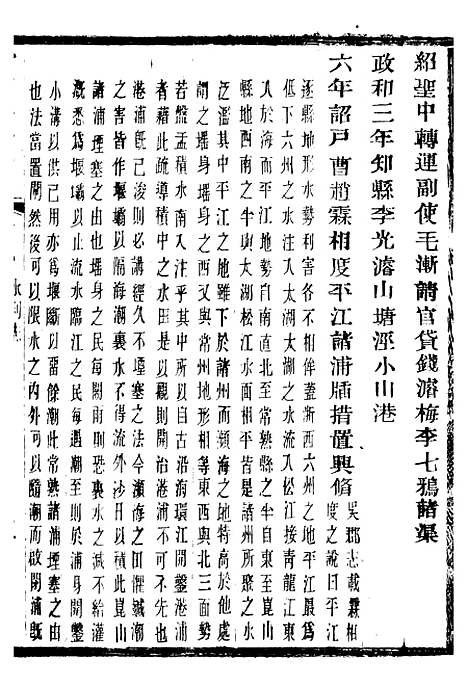 紹聖中轉運副使毛漸請官貸錢濬梅李七鴉諸渠
政和三年知縣李光濬山塘涇小山港
六年詔戶曹趙霖相度平江諸浦牐措置興脩吳郡志載霖相
度之說曰平江
逐縣地形水勢利害各不相侔蓋浙西六州之地平江最爲
低下六州之水注入太湖太湖之水流入松江接青龍江東
入於海而平江地勢自南直北至常熟縣之半自東至崑山
縣地西南之半與太湖松江水面相平皆是諸州所聚之水
泛濫其中平江之地雖下於諸州而瀕海之地特高於他處
謂之堽身堽身之西又與常州地形相等東西與北三面勢
若盤盂積水南入注乎其中所以自古沿海環江開鑿港浦
者藉此疏導積中之水田是以觀則開治港浦不可不先也
港浦旣已浚則必講經久不堙塞之法今瀕海之田懼鹹潮
之害皆作堰壩以隔海潮裏水不得流外沙日以積此崑山
諸浦堙塞之由也堽身之民每闕雨則恐裏水之減不給灌
溉悉爲堰壩以止流水臨江之民每遇潮至則於浦身開鑿
小溝以供己用亦爲堰斷以留餘潮此常熟諸浦堙塞之由
也法當置閘然後可以限水之內外可以隨潮而啟閉浦旣